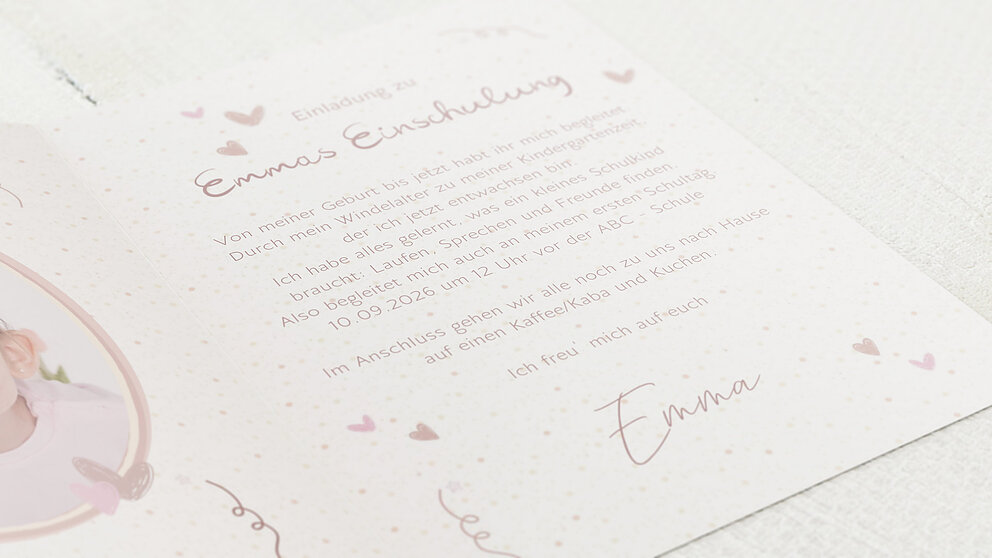 Einladung zu
Emmas Einschulung
Von meiner Geburt bis jetzt habt ihr mich begleitet
Durch mein Windelalter zu meiner Kindergartenzeit,
der ich jetzt entwachsen bin.
Ich habe alles gelernt, was ein kleines Schulkind
braucht: Laufen, Sprechen und Freunde finden.
Also begleitet mich auch an meinem ersten Schultag
10.09.2026 um 12 Uhr vor der ABC - Schule
Im Anschluss gehen wir alle noch zu uns nach Hause
auf einen Kaffee/Kaba und Kuchen.
Ich freu' mich auf euch
Emma